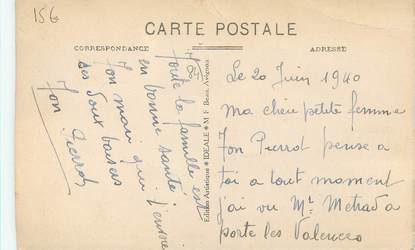 156
CARTE POSTALE
CORRESPONDANCE
ADRESSE
Le 20 Juin 1940
Ma cheri petite femme
Ton Pierrot pense a
toi a tout moment
j'ai vu Mr Metrad a
porte les Valences
Toute la famille est
en bonne santé
Ton mari qui t'envoie
des doux baisers
Ton Pierrot
Edition Artistique ★ IDEALE ★ M. F. Beau, Avignon